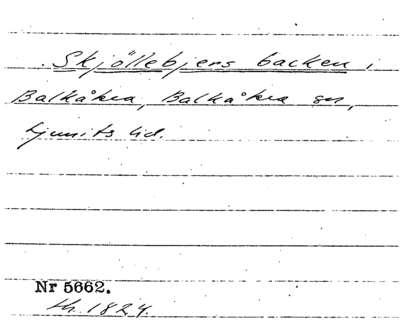 Skjöllebjers backen i
Balkåkra, Balkåkra sn,
Ljunits hd.
Nr 5662.
th. 1824.